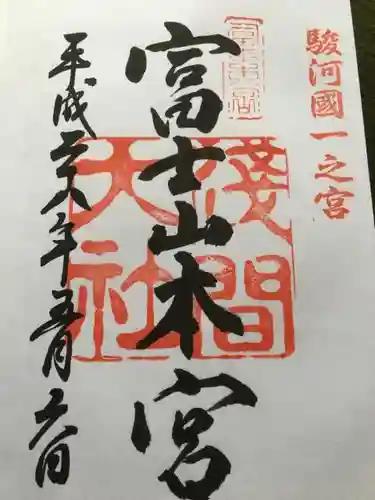 駿河國一之宮
富士山本宮
淺間大社
平成二八年五月六日